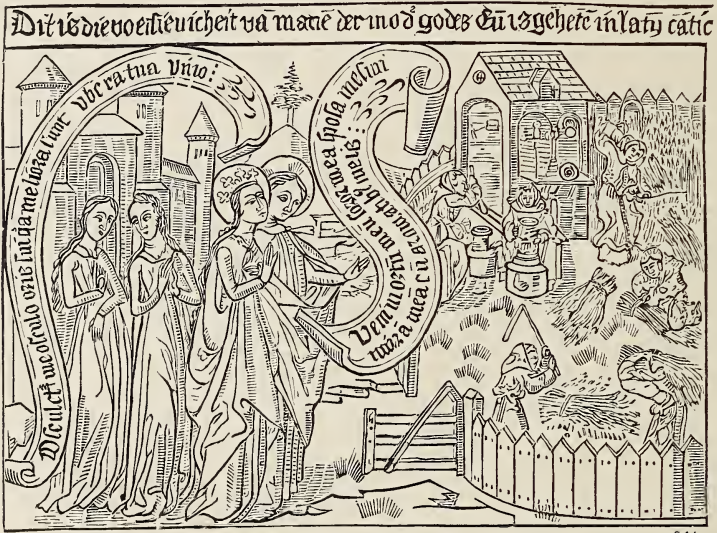 Dit is die voersienicheit vā mariē der mod' godes Eñ is gehetē in laty cātic
Osculet' me osculo oris sui q̄a meliora sunt vbera tua vino:
Veni in ortū meū soror mea sposa messui
mirrā meā cū aromatib' meis: